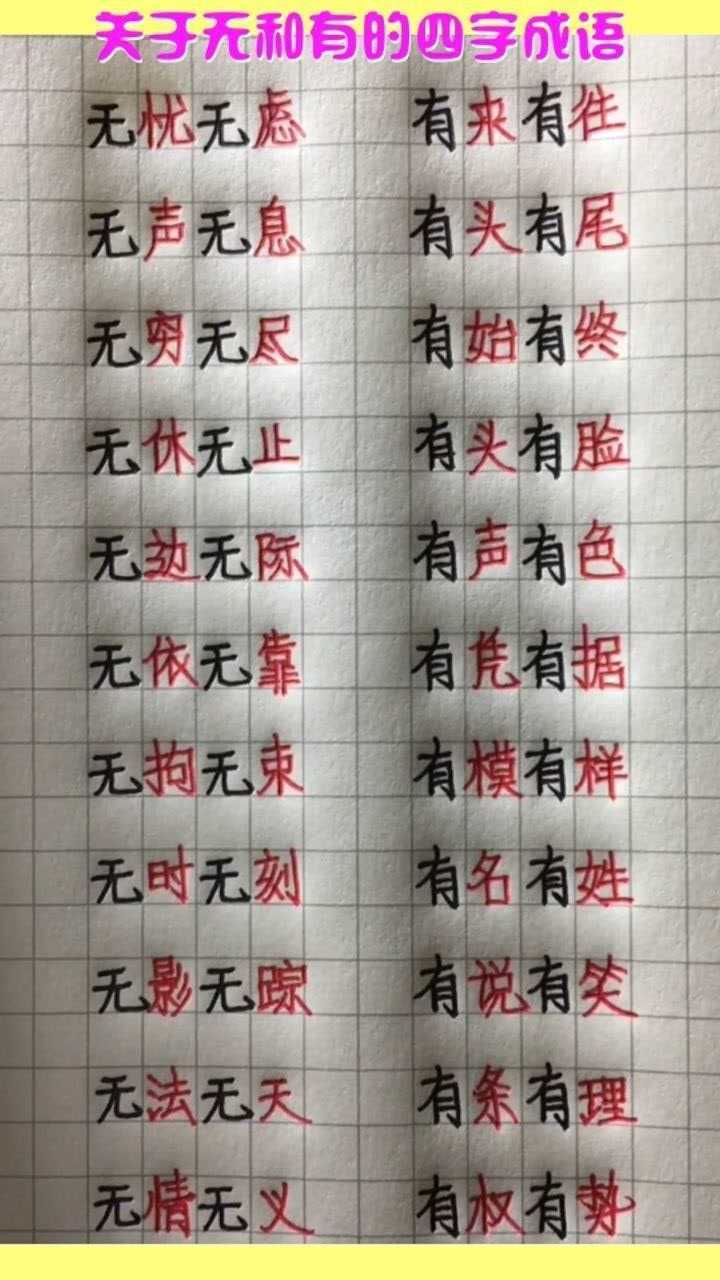 关于无和有的四字成语
无忧无虑 有来有往
无声无息 有头有尾
无穷无尽 有始有终
无休无止 有头有脸
无边无际 有声有色
无依无靠 有凭有据
无拘无束 有模有样
无时无刻 有名有姓
无影无踪 有说有笑
无法无天 有条有理
无情无义 有权有势